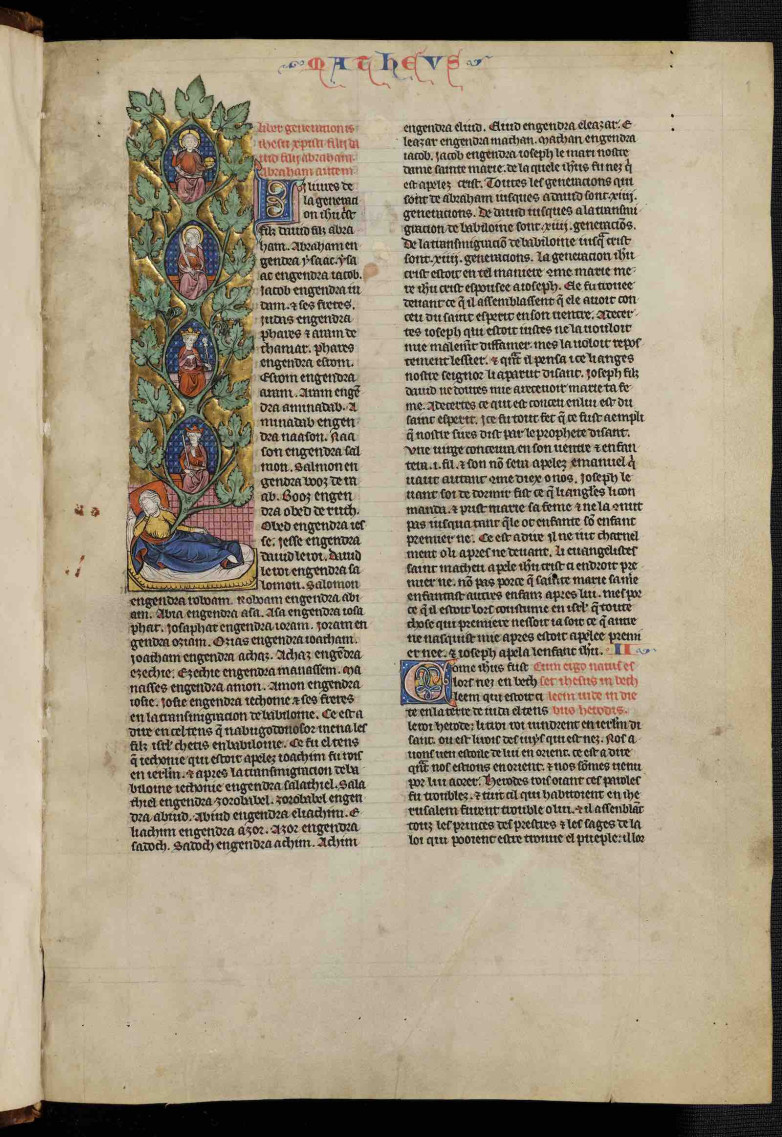 MATHEVS
Liber generationis
ihesu xpisti filij da
uid filij abraham
abraham autem
Li liures de
la generaci
on ihu crist
filz dauid filz abra
ham. Abraham en
gendra ysaac. ysa
ac engendra iacob.
Iacob engendra iu
dam. ⁊ ses freres.
iudas engendra
phares ⁊ aram de
thamar. phares
engendra esrom.
Esrom engendra
aram. Aram engē
dra aminadab. A
minadab engen
dra naason. Naa
son engendra sal
mon. Salmon en
gendra booz de ra
ab. Booz engen
dra obed de ruth.
Obed engendra ies
se. iesse engendra
dauid le roi. Dauid
le roi engendra sa
lomon. Salomon
engendra roboam. Roboam engendra abi
am. Abia engendra asa. Asa engendra iosa
phat. Josaphat engendra ioram. joram en
gendra oziam. Ozias engendra ioatham.
Joatham engendra achaz. Achaz engēdra
ezechie. Ezechie engendra manassem. Ma
nasses engendra amon. Amon engendra
iosie. Josie engendra iechonie ⁊ ses freres
en la transmigration de babilonie. Ce est a
dire en cel tens q̄ nabugodonosor mena les
filz isrl' chetis en babilonie. Ce fu el tens
q̄ iechonie qui estoit apelez ioachim fu rois
en ierlm̄. ⁊ apres la transmigracion de ba
biloine iechonie engendra salathiel. Sala
thiel engendra zorobabel. zorobabel engen
dra abiud. Abiud engendra eliachim. E
liachim engendra azor. Azor engendra
sadoch. Sadoch engendra achim. Achim
engendra eliud. Eliud engendra eleazar. E
leazar engendra mathan. Mathan engendra
iacob. Jacob engendra ioseph le mari nostre
dame sainte marie. de la quele ihūs fu nez q̇
est apelez crist. Toutes les generacions qui
sont de abraham iusques a dauid sont .xiiij.
generacions. De dauid iusques a la transmi
gracion de babiloine sont .xiiij. generaciōs.
De la transmigraciō de babilonie iusq̄ crist
sont .xiiij. generacions. La generacion ihū
crist estoit en tel maniere. Come marie me
re ihū crist espousee a ioseph. Ele fu trouee
deuant ce q̄ il assemblassent q̄ ele auoit con
ceu du saint esperit en son uentre. Adecer
tes ioseph qui estoit iustes ne la uouloit
mie malemēt diffamer. mes la uoloit repos
tement lessier. ⁊ q̄nt il pensa i ce li anges
nostre seignor li aparut disant. Joseph filz
dauid ne doutes mie a receuoir marie ta fe
me. Adecertes ce qui est conceu en lui est du
saint esperit. Ice fu tout fet q̄ ce fust aempli
q̄ nostre sires dist par le prophete disant.
Vne uirge conceura en son uentre ⁊ enfan
tera .i. fil. ⁊ son nō sera apelez emanuel q̇
uaut autant come diex o nos. Joseph le
uant soi de dormir fist ce q̄ li angles li con
manda. ⁊ prist marie sa feme ⁊ ne la conut
pas iusqua tant q̄le ot enfante sō enfant
premier ne. Ce est a dire il ne iut charnel
ment o li apres ne deuant. Li euangelistes
saint macheu apele ihū crist ci endroit pre
mier ne. nō pas porce q̄ sainte marie sa me
enfantast autres enfanz apres lui. mes por
ce q̄ il estoit lors coustume en isrl' q̄ toute
chose qui premiere nessoit ia soit ce q̄ autre
ne nasquist mie apres estoit apelee premi
er nee. ⁊ ioseph apela lenfant ihū. II
Come ihūs fust Cum ergo natus es
lors nez en beth set ihesus in beth
leem qui estoit ci leem iude in die
te en la terre de iuda el tens bus herodis.
le roi herode: li troi roi uindrent en ierlm̄ di
sant. ou est li rois des iuys qui est nez. Nos a
uons ueu estoile de lui en orient. ce est a dire
q̄nt nos estions en orient. ⁊ nos sōmes uenu
por lui aorer. Herodes rois oiant ces paroles
fu troublez. ⁊ tuit cil qui habitoient en ihe
rusalem furent trouble o lui. ⁊ il assemblāt
touz les princes des prestres ⁊ les sages de la
loi qui pooient estre trouue el pueple: illor